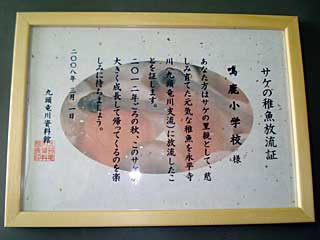 サケの稚魚放流証
鳴鹿小学校 様
あなた方はサケの里親として、慈
しみ育てた元気な稚魚を永平寺
川(九頭竜川支流)に放流したこ
とを証します。
二〇一二年ごろの秋、このサケが
大きく成長して帰ってくるのを楽
しみに待ちましょう。
二〇〇八年 三月 一日
九頭竜川資料館